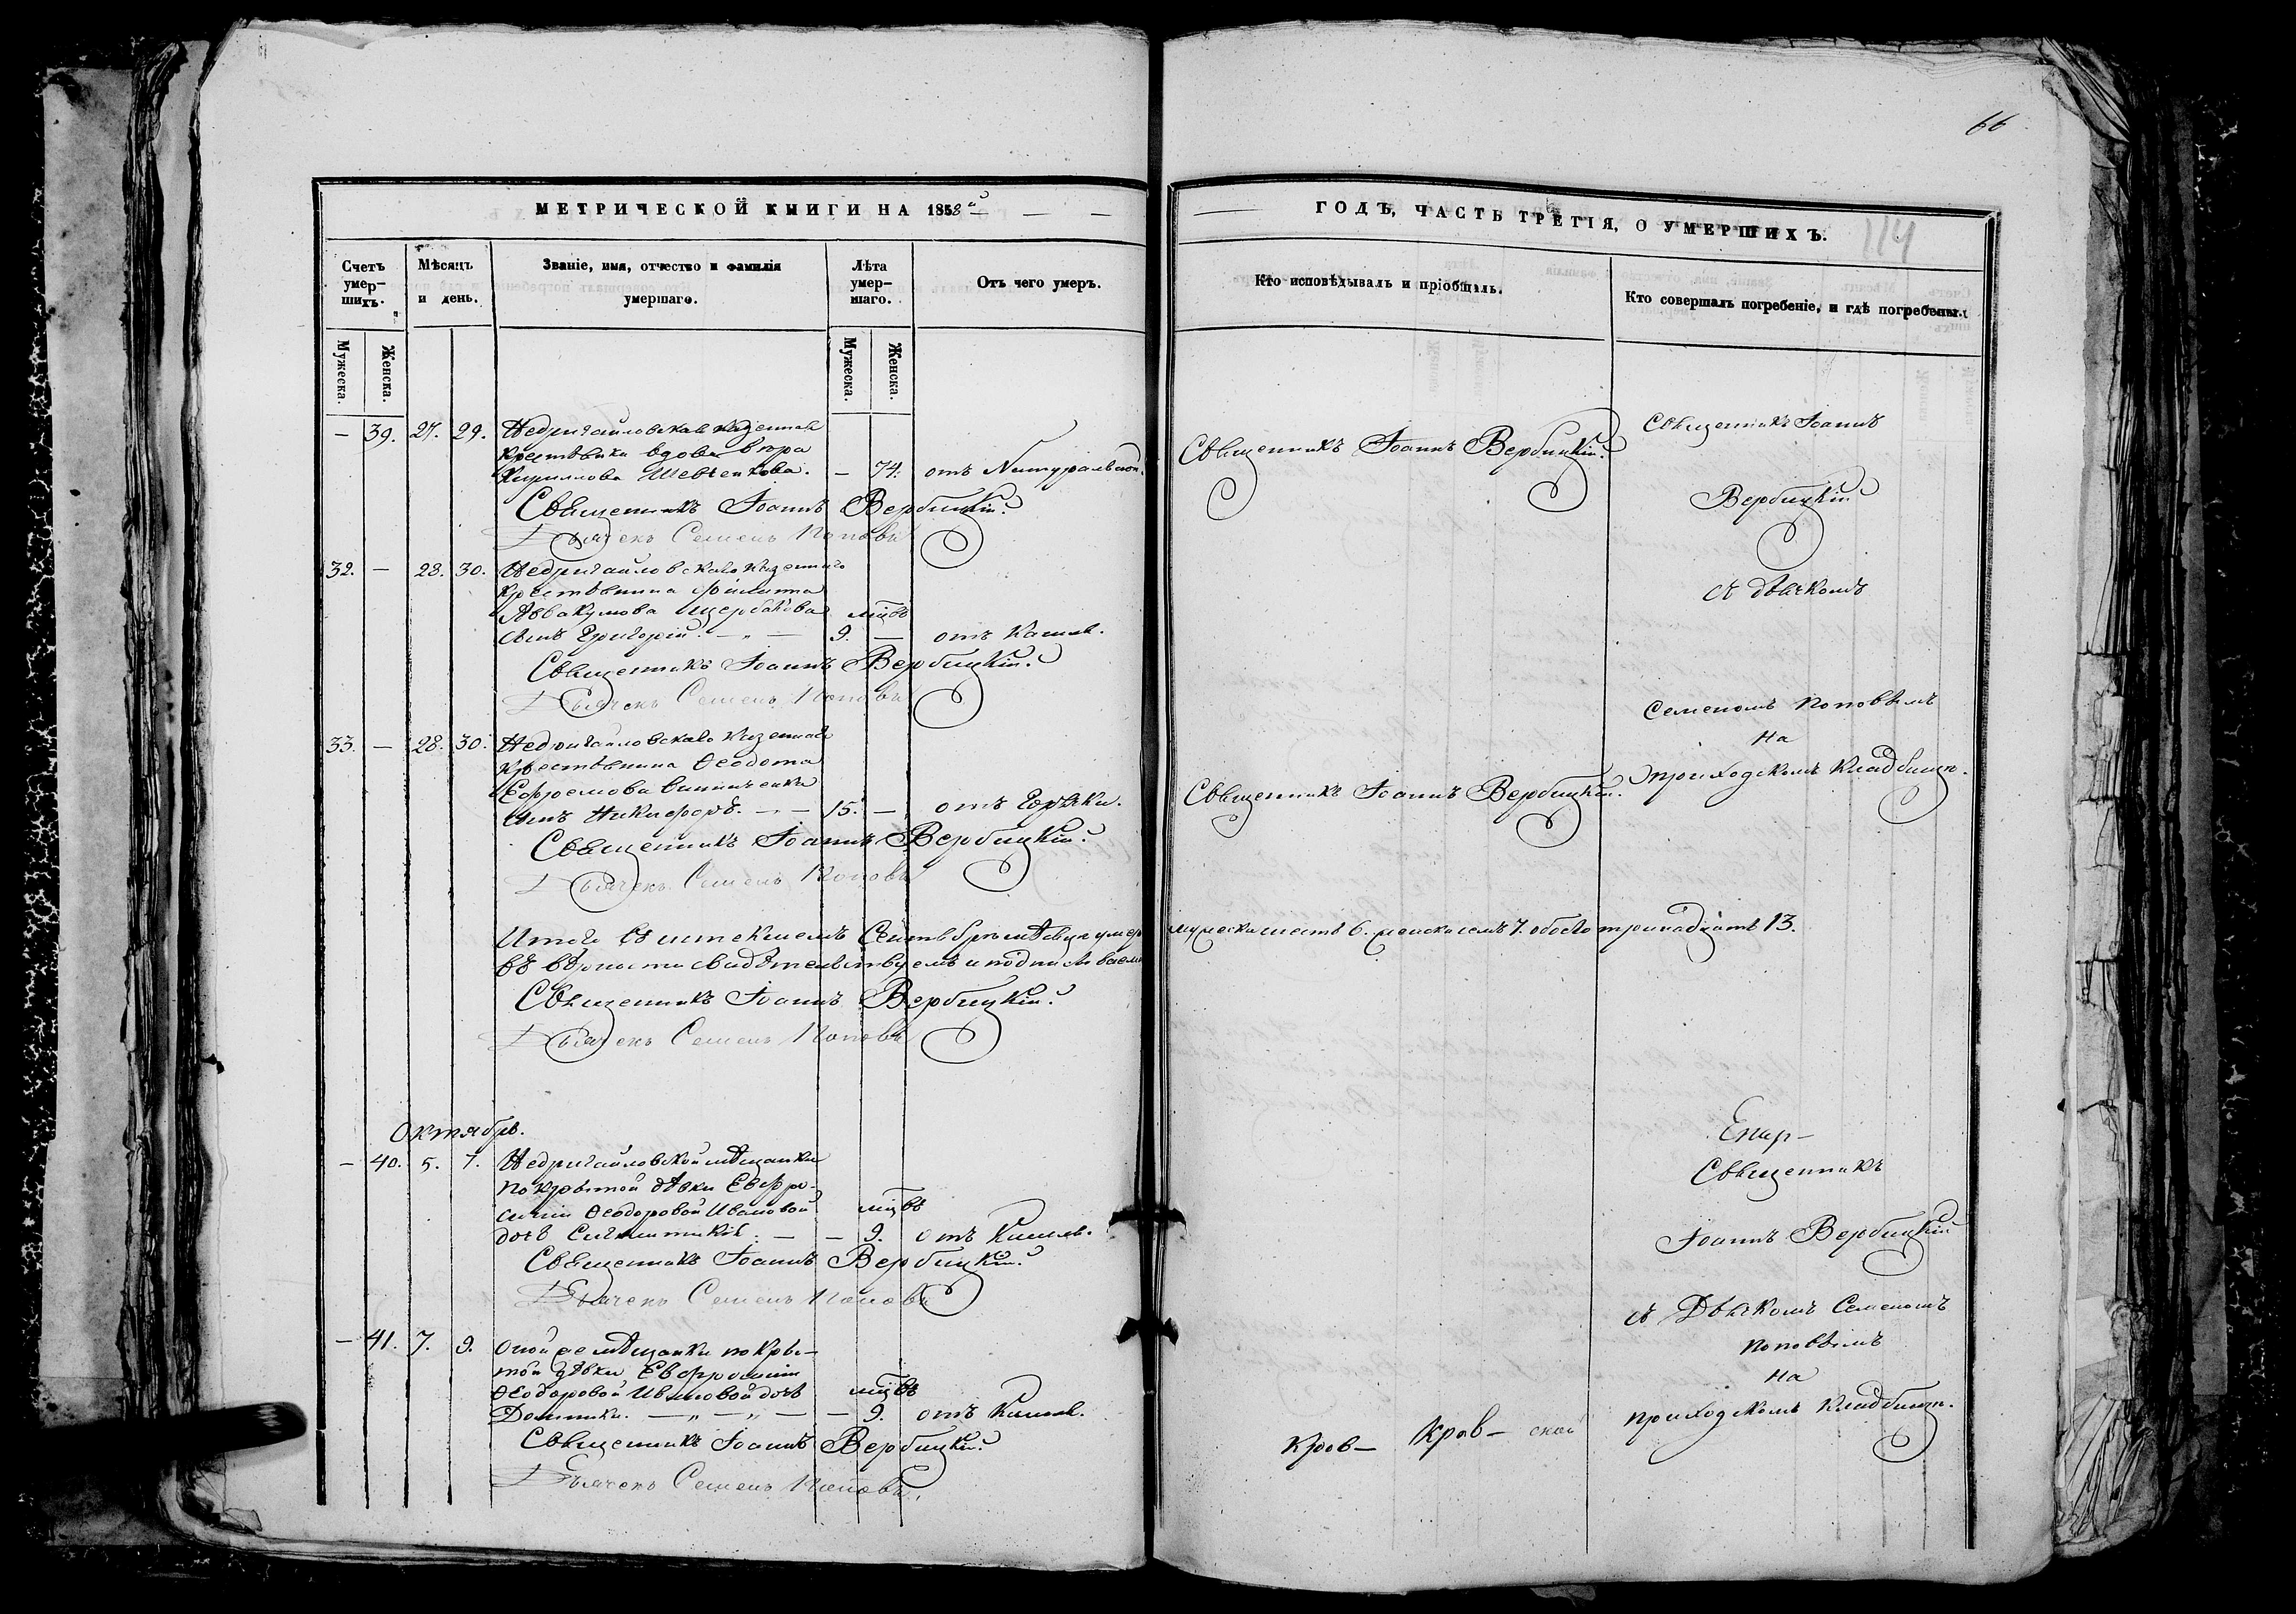 66
МЕТРИЧЕСКОЙ КНИГИ НА 1858й
Счетъ умер-
шихъ.
Мѣсяцъ
и день.
Званіе, имя, отчество и фамилія
умершаго.
Лѣта
умер-
шаго.
Отъ чего умеръ.
Мужеска.
Женска.
Мужеска.
Женска.
— 39. 27. 29. Недригайловская казенная
крестьянка вдова
Кириллова Шевченкова. — 74. отъ Натуральной.
Священникъ Іоаннъ Вербицкій.
Дьячекъ Семенъ Поповъ
32. — 28. 30. Недригайловскаго казеннаго
крестьянина Филиппа
Аввакумова Щербакова мцвъ
сынъ Григорій. — „ — 9. — отъ Кашля.
Священникъ Іоаннъ Вербицкій.
Дьячекъ Семенъ Поповъ
33. — 28. 30. Недригайловскаго казеннаго
крестьянина Ѳеодота
Ефремова
сынъ Никифоръ. — 15. — отъ Горячки.
Священникъ Іоаннъ Вербицкій.
Дьячекъ Семенъ Поповъ
Итого въ истекшемъ Сентябрѣ мѣсяцѣ умер
въ вѣрности свидѣтельствуемъ и подписываемъ
Священникъ Іоаннъ Вербицкій.
Дьячекъ Семенъ Поповъ
Октябрь.
— 40. 5. 7. Недригайловской мѣщанки
покрытой дѣвки Евфро-
синіи Ѳеодоровой Ивановой мцвъ
дочь — — 9. отъ Кашля.
Священникъ Іоаннъ Вербицкій.
Дьячекъ Семенъ Поповъ
— 41. 7. 9. Оной же мѣщанки покры-
той дѣвки Евфросиніи
Ѳеодоровой Ивановой дочь мцвъ
Домника. — „ — „ — — 9. отъ Кашля.
Священникъ Іоаннъ Вербицкій.
Дьячекъ Семенъ Поповъ.
ГОДЪ, ЧАСТЬ ТРЕТІЯ, О УМЕРШИХЪ.
114
Кто исповѣдывалъ и пріобщалъ.
Кто совершалъ погребеніе, и гдѣ погребены.
Священникъ Іоаннъ Вербицкій.
Священникъ Іоаннъ
Вербицкій
съ дьячкомъ
Семеномъ Поповымъ
на
приходскомъ кладбищѣ.
Священникъ Іоаннъ Вербицкій.
мужеска шесть 6. женска семь 7. обоего тринадцать 13.
Священникъ
Іоаннъ Вербицкій
съ Дьячкомъ Семеномъ
Поповымъ
на
приходскомъ кладбищѣ.
Кров— Кров— ской